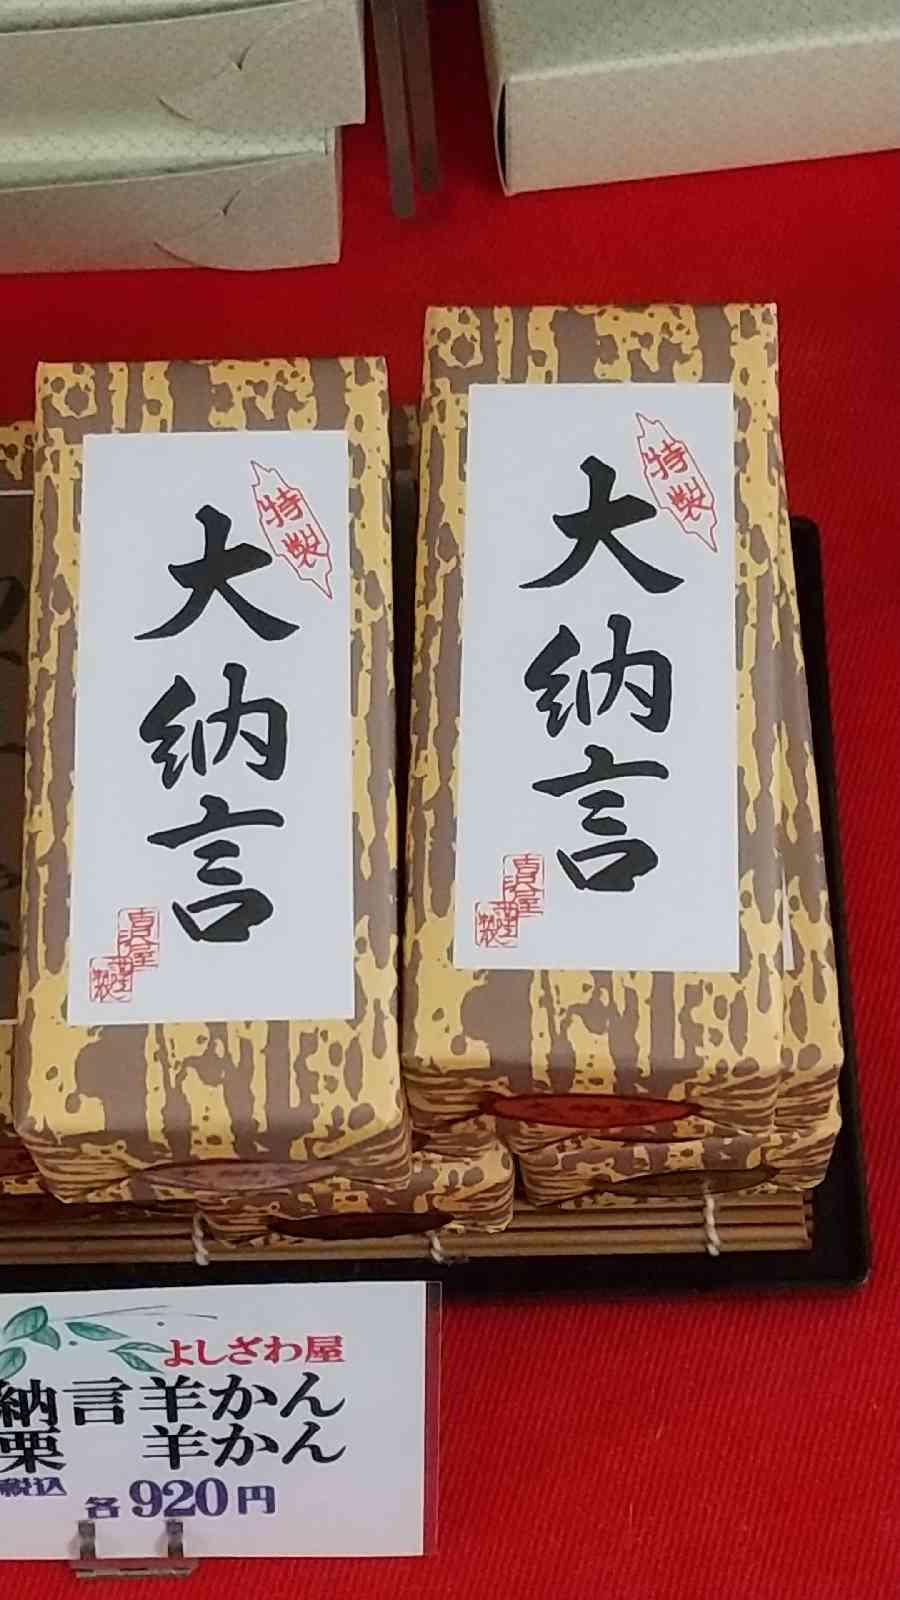 特製
大納言
喜沢屋
謹製
特製
大納言
喜沢屋
謹製
よしざわ屋
納言羊かん
栗 羊かん
税込 各920円